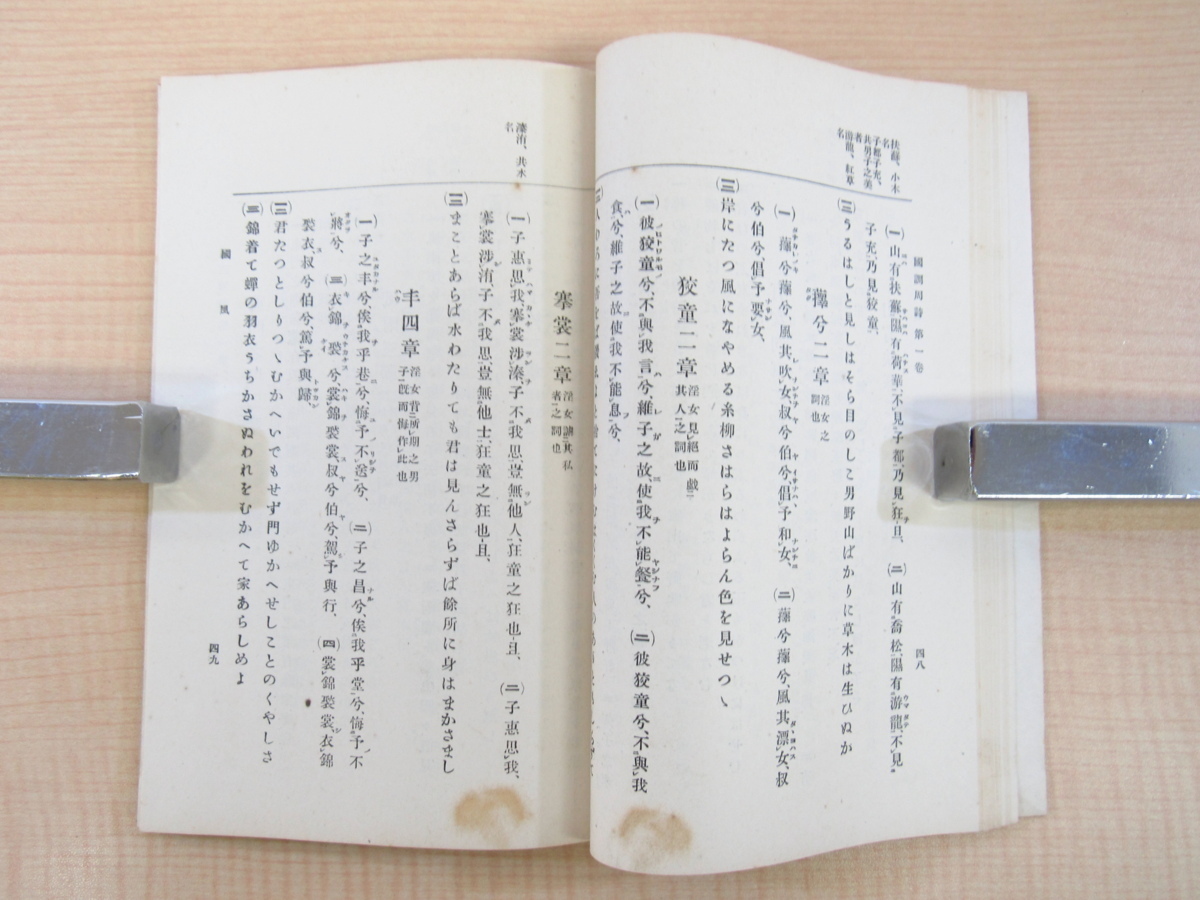 扶蘇、小木
名
子都子充、
共男子之美
者
游龍、紅草
名
國訓周詩 第一卷
四八
(一)山有扶蘇、隰有荷華、不見子都、乃見狂且、 (二)山有喬松、隰有游龍、不見
子充、乃見狡童、
(二)うるはしと見しはそら目のしこ男野山ばかりに草木は生ひぬか
蘀兮二章 淫女之詞也
(一)蘀兮蘀兮、風其吹女、叔兮伯兮、倡予和女、 (二)蘀兮蘀兮、風其漂女、叔
兮伯兮、倡予要女、
(二)岸にたつ風になやめる糸柳さはらはよらん色を見せつゝ
狡童二章 淫女見絕而戲其人之詞也
(一)彼狡童兮、不與我言兮、維子之故、使我不能餐兮、 (二)彼狡童兮、不與我
食兮、維子之故、使我不能息兮、
溱洧、共水
名
褰裳二章 淫女謔其私者之詞也
(一)子惠思我、褰裳涉溱、子不我思、豈無他人、狂童之狂也且、 (二)子惠思我、
褰裳涉洧、子不我思、豈無他士、狂童之狂也且、
(二)まことあらば水わたりても君は見んさらずば餘所に身はまかさまし
丰四章 淫女背所期之男子、旣而悔作此也
(一)子之丰兮、俟我乎巷兮、悔予不送兮、 (二)子之昌兮、俟我乎堂兮、悔予不
將兮、 (三)衣錦褧衣、裳錦褧裳、叔兮伯兮、駕予與行、 (四)裳錦褧裳、衣錦
褧衣、叔兮伯兮、駕予與歸、
(二)君たつとしりつゝむかへいでもせず門ゆかへせしことのくやしさ
(三)錦着て蟬の羽衣うちかさぬわれをむかへて家あらしめよ
國風
四九